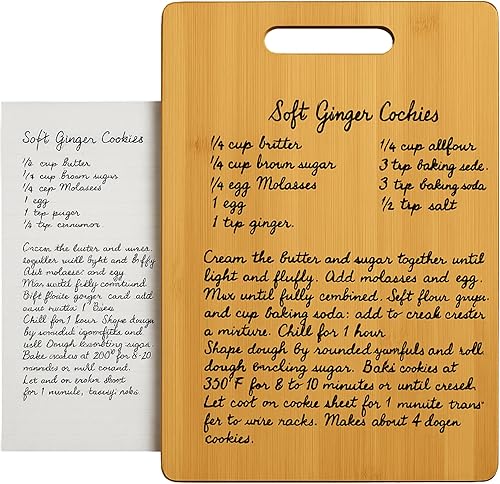 Soft Ginger Cookies
1/4 cup butter
1/4 cup brown sugar
1/4 cep Molasees
1 egg
1 tep puger
1/4 tip cinnamor
Creem the buster and
Aut molasses and egg
Max until fully
Chill for 1 Shape dough
by
will Dough sugar
Bake at 200° for 8-20
Let and on shoot
for 1 minule,
Soft Ginger Cochies
1/4 cup britter
1/4 cup brown sugar
1/4 egg Molassies
1 egg
1 tup ginger.
1/4 cup allfour
3 trp baking sede.
3 trp baking soda
1/2 trp salt
Cream the butter and sugar together until
light and fluffly. Add molasies and egg.
Mux until fully combined. Seft flour grupu.
and cup baking soda: add to creak crester
a mixture. Chill for 1 hour
Shape dough by rounded yumfuls and roll
dough encling sugar. Baki cookies at
350°F for 8 to 10 minutes or until cresed.
Let coot on cookie sheet for 1 minuite trans
fer to wire racks. Makes about 4 dogen
cookies.